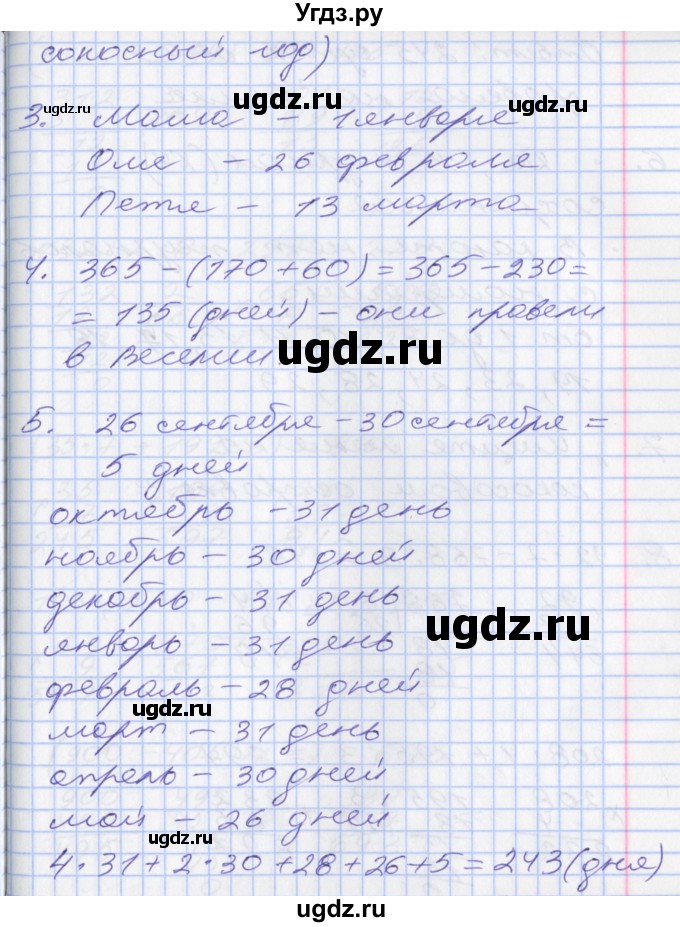 Угдз.ру
сокосный год)
ugdz.ru
ugdz.ru
ugdz.ru
3. Мама – 1 января
Оле – 26 февраля
Петя – 13 марта
4. 365 – (170 + 60) = 365 – 230 =
= 135 (дней) – они провели
в Веселии
ugdz.ru
ugdz.ru
5. 26 сентября – 30 сентября =
5 дней
ugdz.ru
октябрь – 31 день
ноябрь – 30 дней
декабрь – 31 день
ugdz.ru
январь – 31 день
февраль – 28 дней
ugdz.ru
март – 31 день
апрель – 30 дней
май – 26 дней
ugdz.ru
4 · 31 + 2 · 30 + 28 + 26 + 5 = 243 (дня)
ugdz.ru